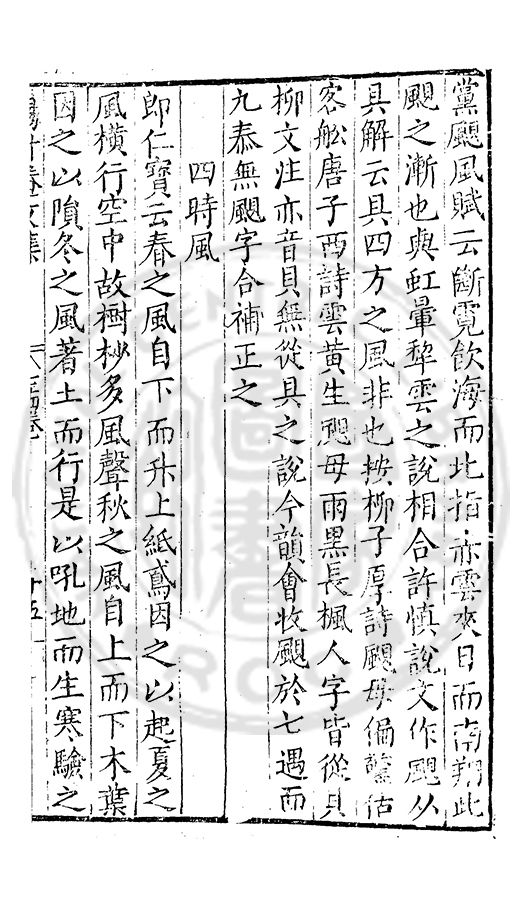 黨颶風賦云斷霓飲海而北指赤雲夾日而南翔此
颶之漸也與虹暈犂雲之說相合許慎說文作颶从
具解云具四方之風非也按柳子厚詩颶母偏驚估
客舩唐子西詩雲黃生颶母雨黑長楓人字皆從貝
柳文注亦音貝無從具之說今韻會收颶於七遇而
九泰無颶字合補正之
四時風
郎仁寶云春之風自下而升上紙鳶因之以起夏之
風橫行空中故樹杪多風聲秋之風自上而下木葉
因之以隕冬之風著土而行是以吼地而生寒驗之